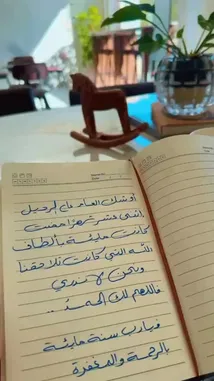 أوشك العام على الرحيل
اثنى عشر شهرًا مضت
كانت مليئة بألطاف
الله التي كانت تلاحقنا
ونحن لا ندري
فاللهم لك الحمد...
فيارب سنة مليئة
بالرحمة والمغفرة